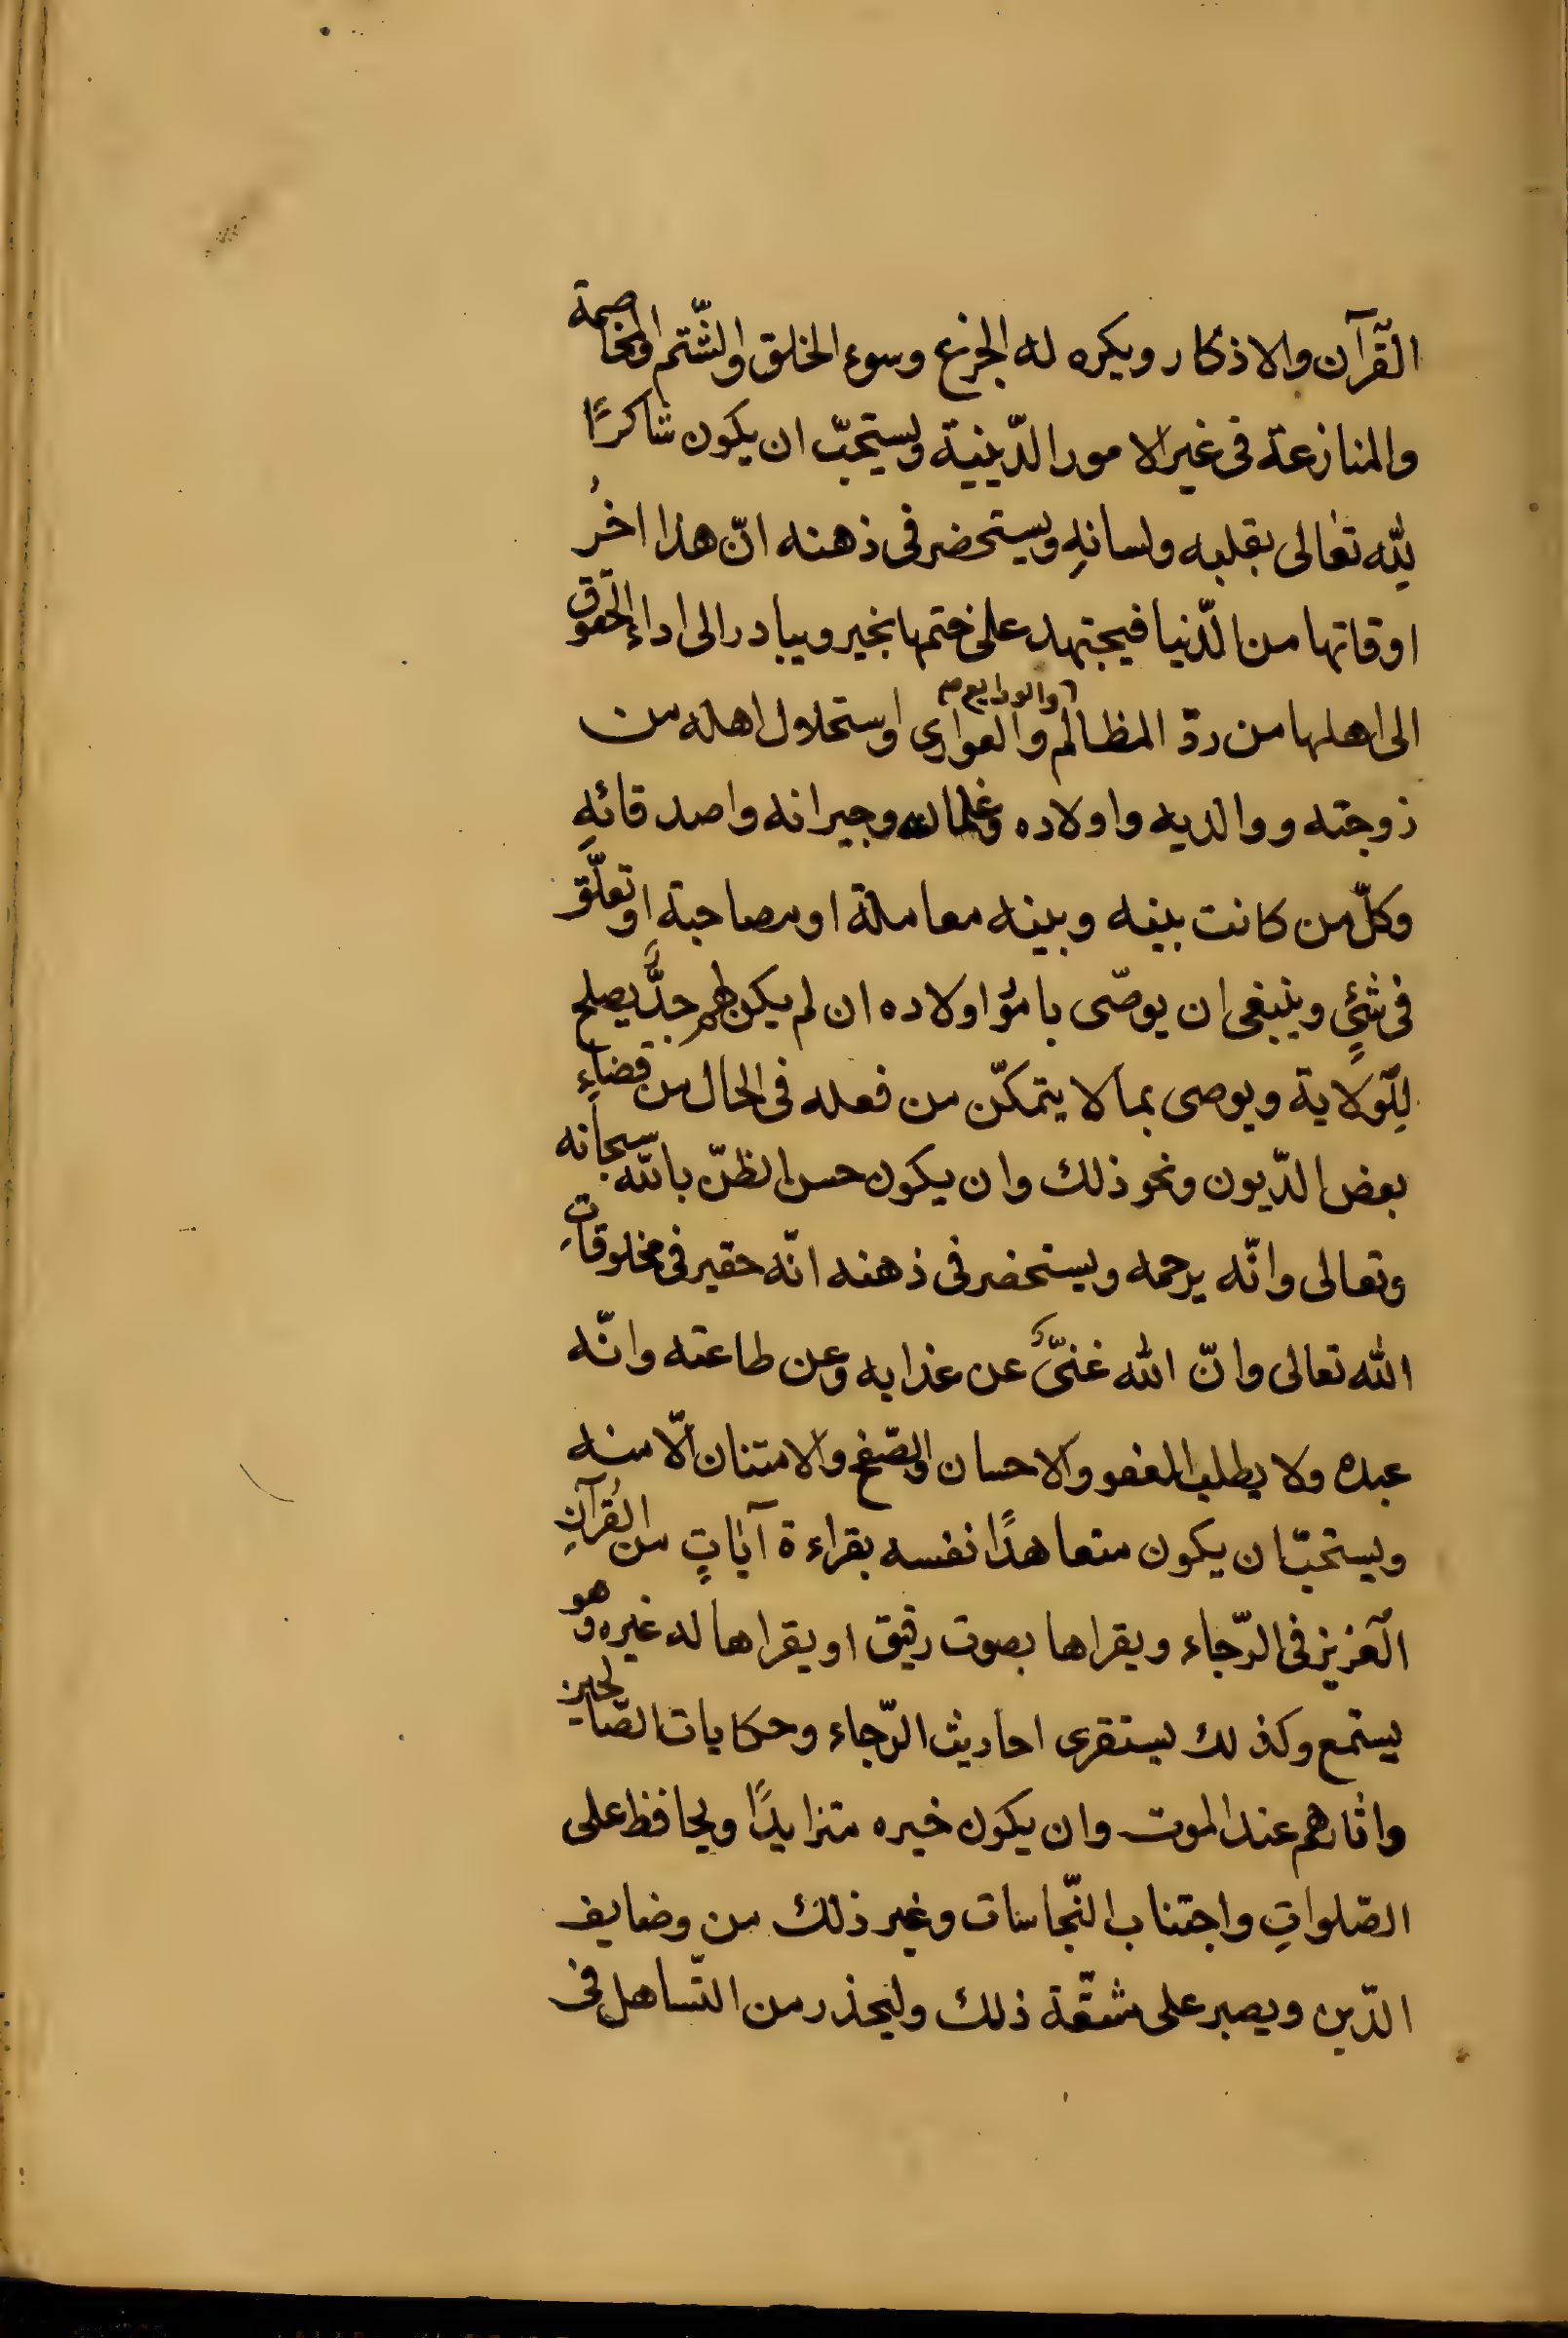 القرآن والاذكار ويكره له الجزع وسوء الخلق والشّتم والمخاصمة
والمنازعة فى غير الامور الدّينية ويستحبّ ان يكون شاكرًا
لِلّه تعالى بقلبه ولسانهِ ويستحضر فى ذهنه انّ هذا اخرُ
اوقاتها من الدّنيا فيجتهد على ختمها بخير ويبادر الى اداء الحقوق
الى اهلها من ردّ المظالم والودايع والعوارى واستحلال اهله من
زوجته ووالديه واولاده وغلمانه وجيرانه واصدقائهِ
وكلّ من كانت بينه وبينه معاملة او مصاحبة او تعلّق
فى شئٍ وينبغى ان يوصّى بامُوراولاده ان لم يكن لهم جدٌّ يصلح
لِلّولاية ويوصى بما لا يتمكّن من فعله فى الحال من قضاءِ
بعض الدّيون ونحو ذلك وان يكون حسن الظنّ بالله سبحانه
وتعالى وانّه يرحمه ويستحضر فى ذهنه انّه حقير فى مخلوقاتِ
الله تعالى وانّ الله غنىٌّ عن عذابه وعن طاعته وانّه
عبده ولا يطلب العفو والاحسان والصّفح والامتنان الّا منه
ويستحبّ ان يكون متعاهدًا نفسه بقراءة آياتٍ من القُرآنِ
العزيز فى الرّجاء ويقراها بصوت رقيق او يقراها له غيره وهو
يستمع وكذلك يستقرى احاديث الرّجاء وحكايات الصّالحين
واثارهم عند الموت وان يكون خيره متزايدًا ويحافظ على
الصّلواتِ واجتناب النّجاسات وغير ذلك من وضايف
الدّين ويصبر على مشقّة ذلك وليحذر من التّساهل فى